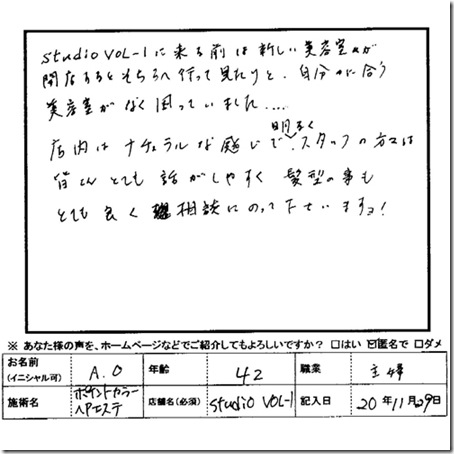 studio VOL-1に来る前は新しい美容室が
開店するとそちらへ行って見たりと、自分に合う
美容室がなく困っていました....
店内はナチュラルな感じで明るく、スタッフの方々は
皆さんとても話がしやすく 髪型の事も
とても良く 相談にのって下さいますョ!
※ あなた様の声を、ホームページなどでご紹介してもよろしいですか? □はい ☑匿名で □ダメ
お名前 (イニシャル可) A.O 年齢 42 職業 主婦
施術名 ポイントカラー ヘアエステ 店舗名(必須) studio VOL-1 記入日 20年11月29日